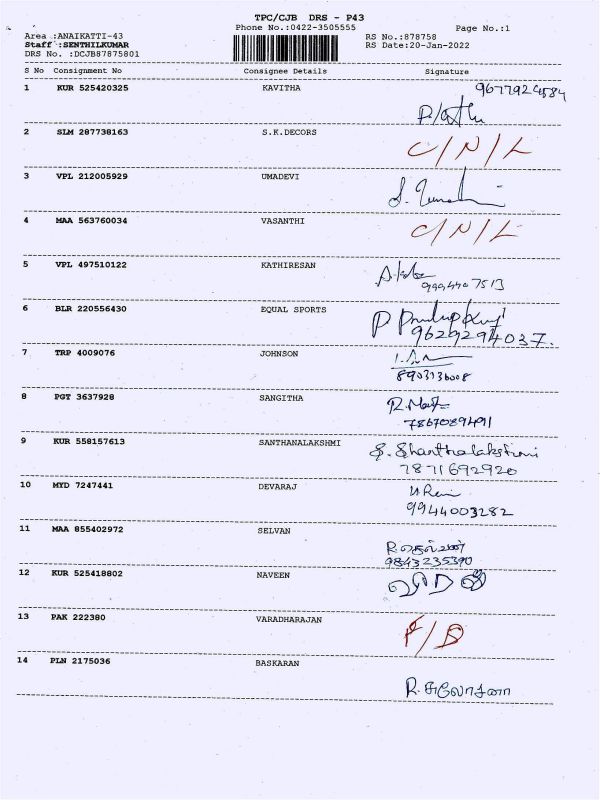 TPC/CJB DRS - P43
Phone No.:0422-3505555
Page No.:1
Area :ANAIKATTI-43
RS No.:878758
Staff :SENTHILKUMAR
RS Date:20-Jan-2022
DRS No. :DCJB87875801
S No Consignment No Consignee Details Signature
1 KUR 525420325 KAVITHA 9677924584
2 SLM 287738163 S.K.DECORS C/N/L
3 VPL 212005929 UMADEVI
4 MAA 563760034 VASANTHI C/N/L
5 VPL 497510122 KATHIRESAN
9994407513
6 BLR 220556430 EQUAL SPORTS
9629294037.
7 TRP 4009076 JOHNSON
8903136008
8 PGT 3637928 SANGITHA
7867089491
9 KUR 558157613 SANTHANALAKSHMI S. Shanthalakshmi
7871692920
10 MYD 7247441 DEVARAJ
9944003282
11 MAA 855402972 SELVAN
9843235390
12 KUR 525418802 NAVEEN
13 PAK 222380 VARADHARAJAN
14 PLN 2175036 BASKARAN
R. சுலோசனா